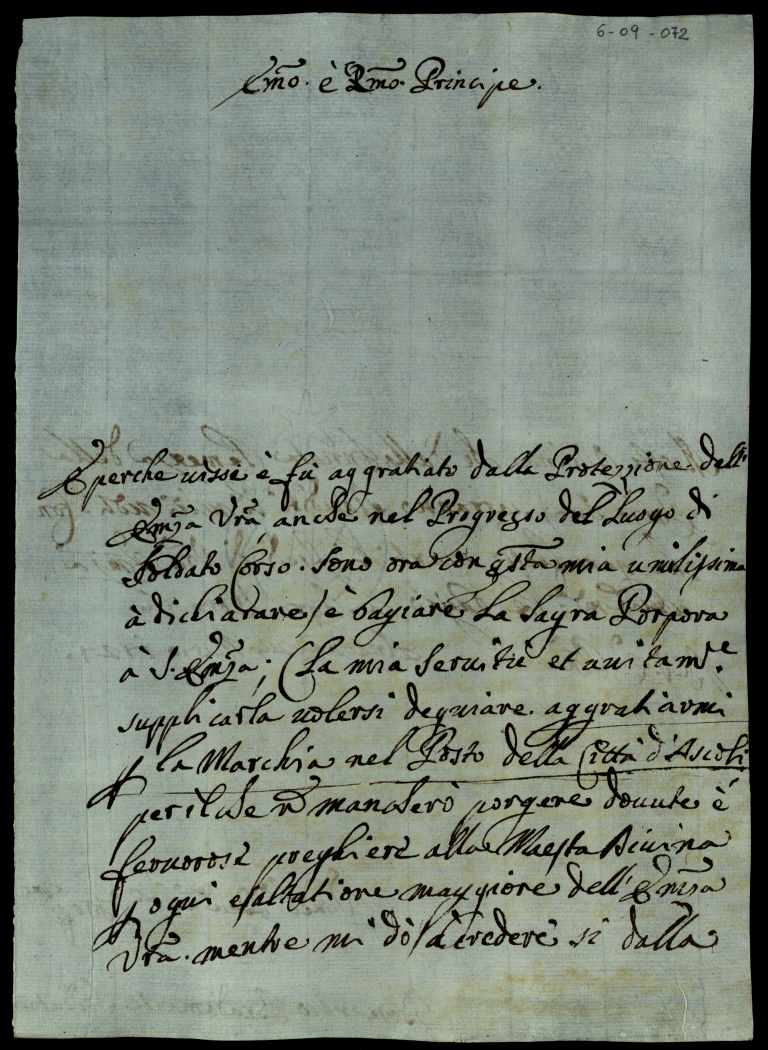 6-09-072
Em̃o. è Rm̃o. Principe.
E perche uisse è fù aggratiato dalla Protezzione dell'
Em̃za Vrã anche nel Progresso del Luogo di
Soldato Corso. Sono ora con qstã mia umilissima
à dichiarare, è bagiare la Sagra Porpora
à S. Em̃za; la mia Seruitù et unitam.e
supplicarla uolersi degniare. aggratiarmi
p la Marchia nel Posto della Città d'Ascoli
per il che ñ mancherò porgere douute è
feruorose preghiere alla Maesta Diuina
p ogni esaltatione maggiore dell' Em̃za
Vrã. mentre mi dò à credere si dalla